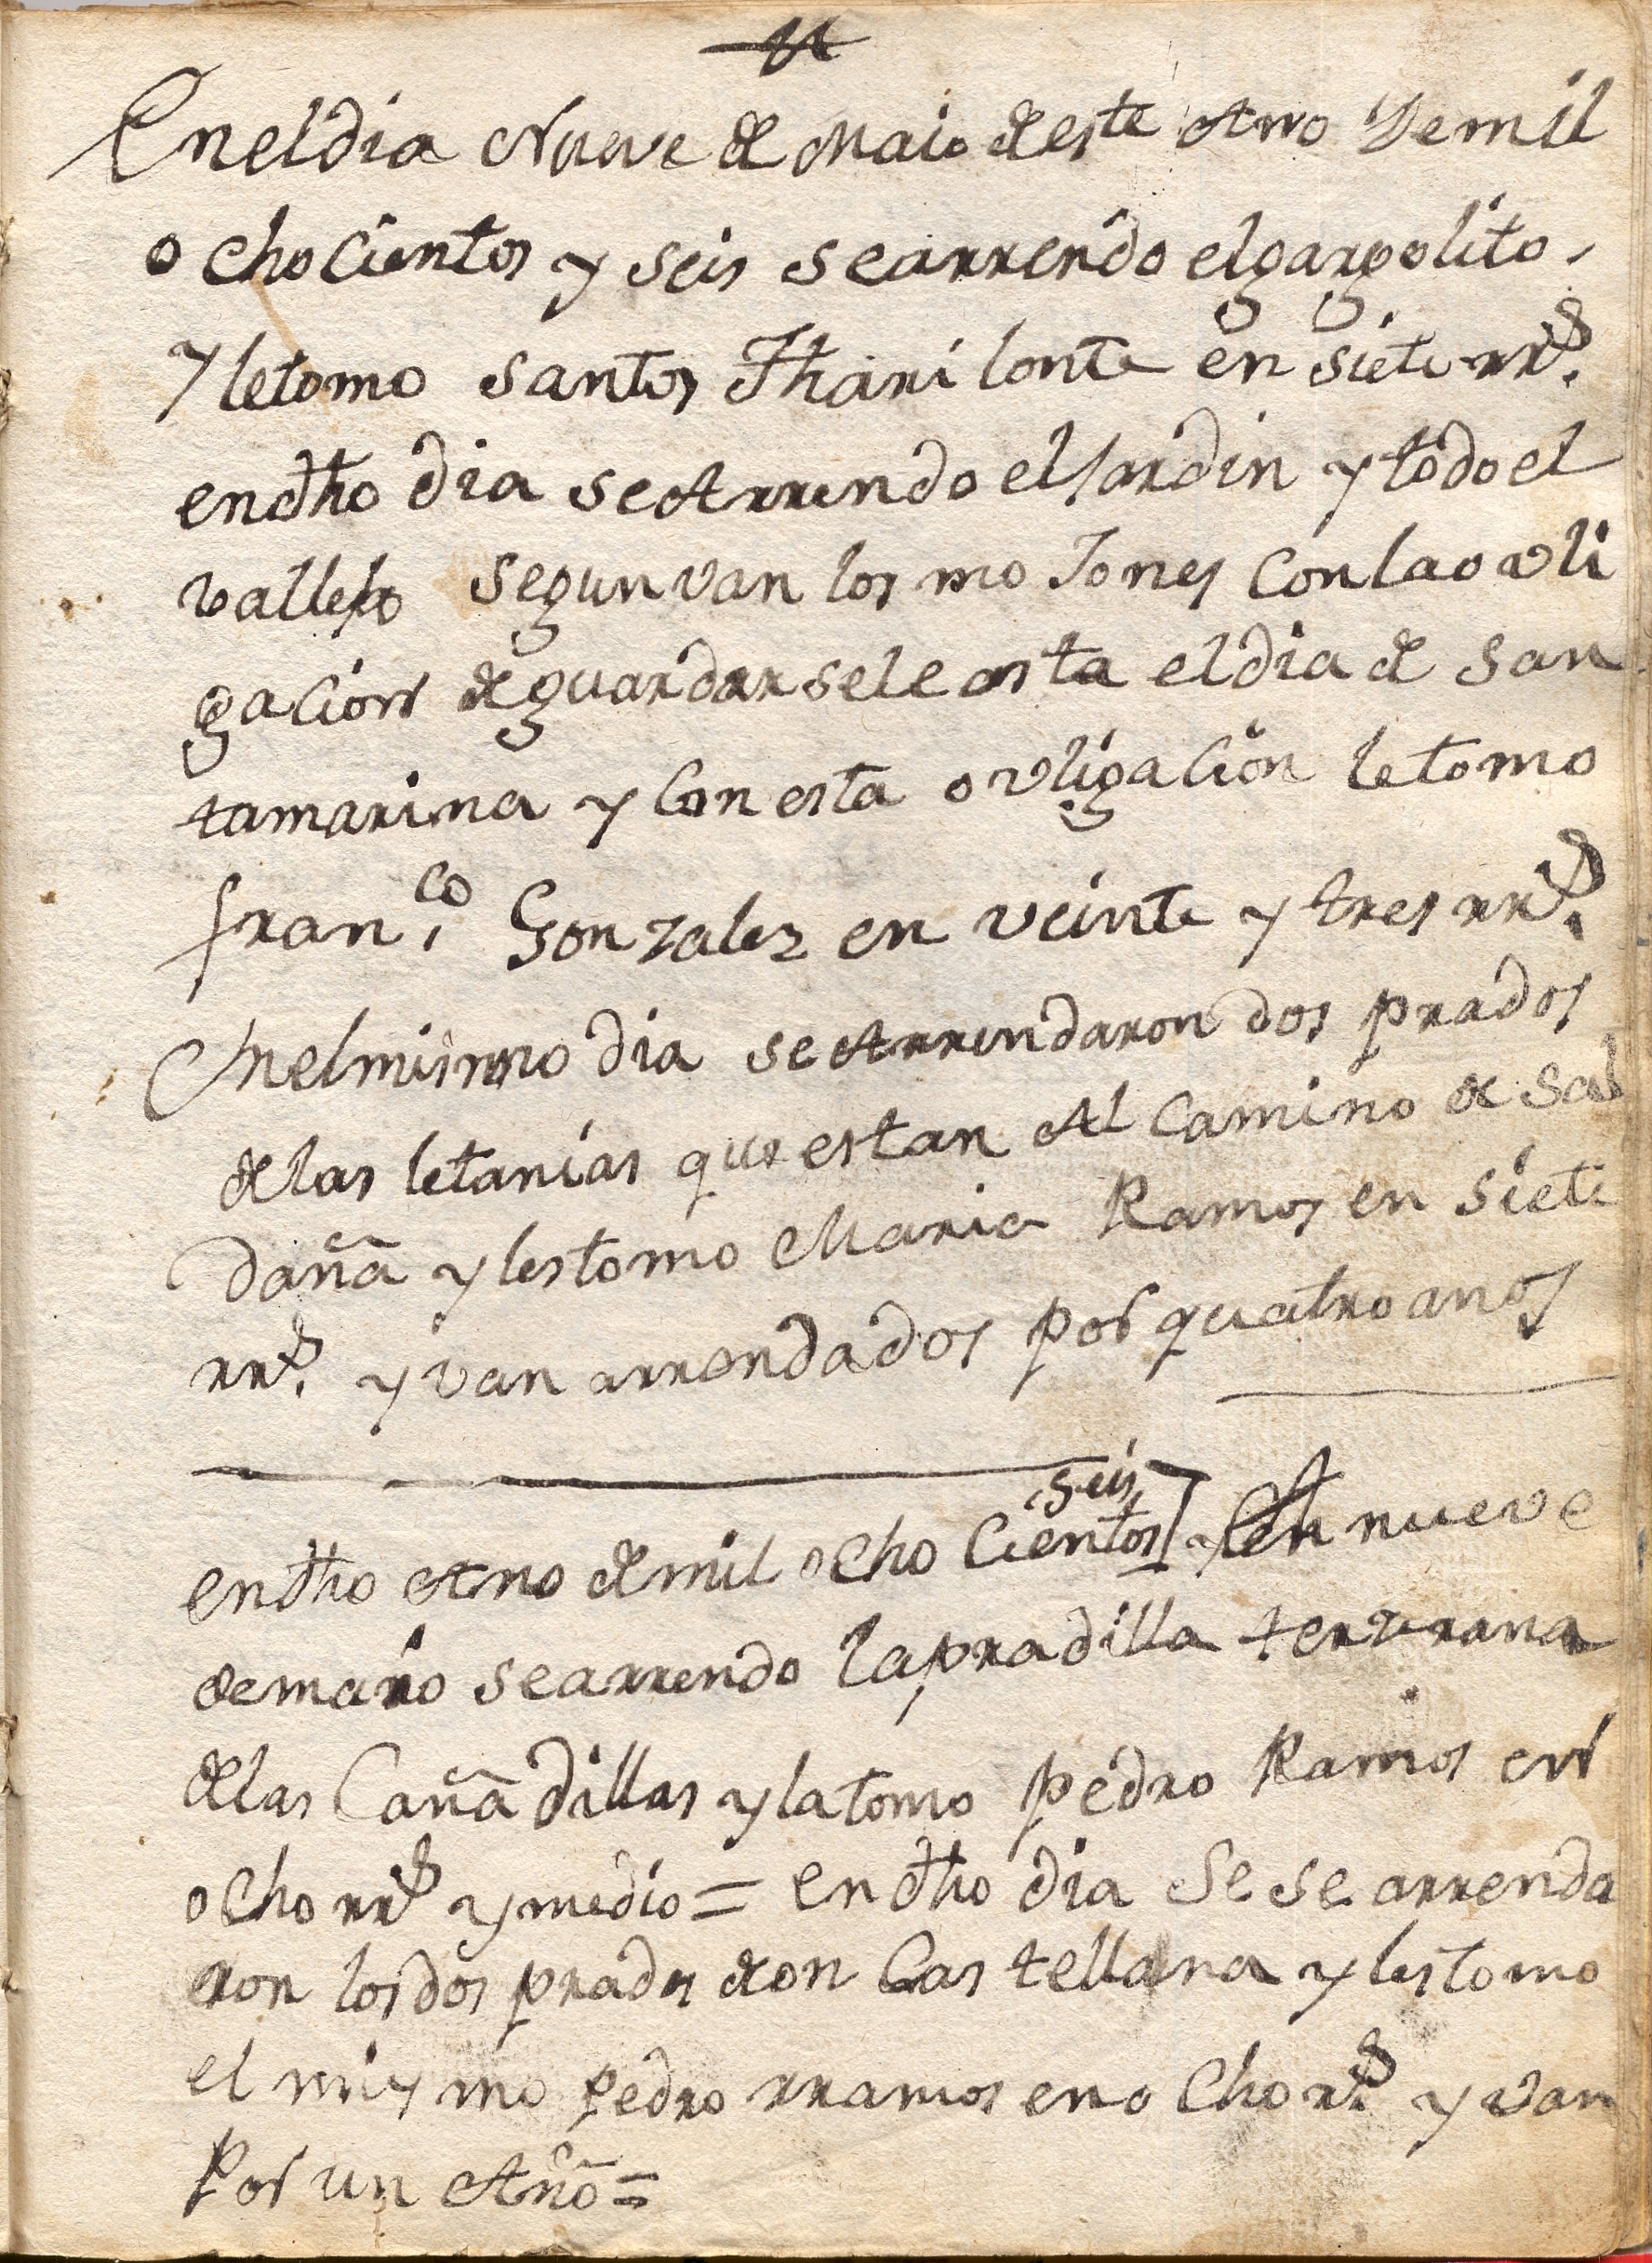 En el dia Nueve de Maio de este Ano De mil
ochocientos y seis se arrendo el gargolito,
y le tomo santos Tharilonte en siete rr.s
en dho dia se Arrendo el Jardin y todo el
vallejo segun van los moJones con la ovli
gacion de guardarsele asta el dia de san
tamarina y con esta ovligacion le tomo
fran.co Gonzalez en veinte y tres rr.s
En el mismo dia se Arrendaron dos prados
de las letanias que estan Al camino de Sal
daña y les tomo Maria Ramos en siete
rr.s y van arrendados por quatro anos
seis
en dho Ano de mil ocho Cientos y en nueve
de maio se arrendo la pradilla
de las Cañadillas y la tomo pedro Ramos en
ocho rr.s y medio = en dho dia Se se arrenda
ron los dos prados de on Castellana y les tomo
el mismo pedro rramos en ocho r.s y van
Por un Año =